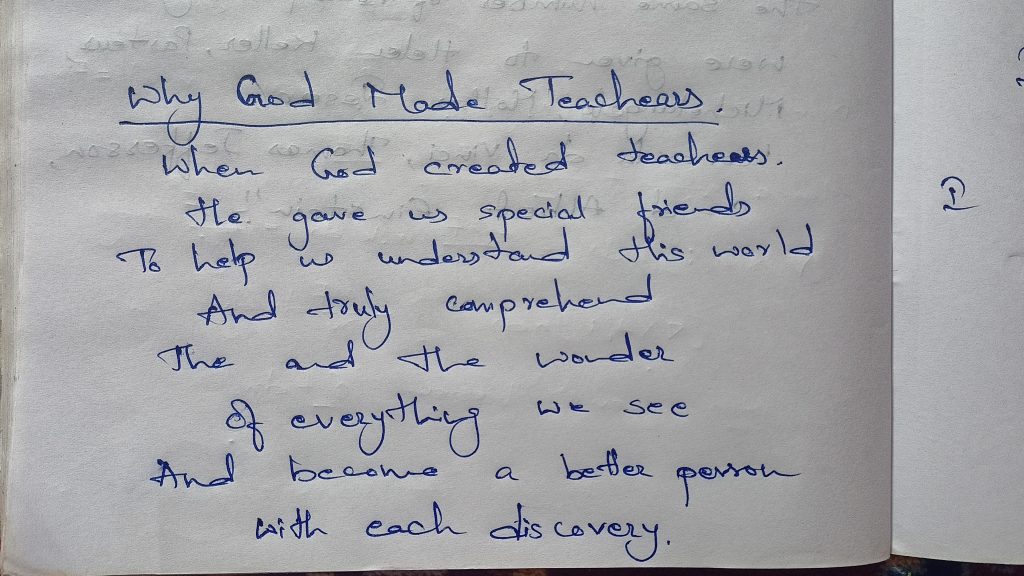 Why God Made Teachears.
When God created teachears.
He gave us special friends
To help us understand this world
And truly comprehend
The and the wonder
Of everything we see
And become a better person
with each discovery.